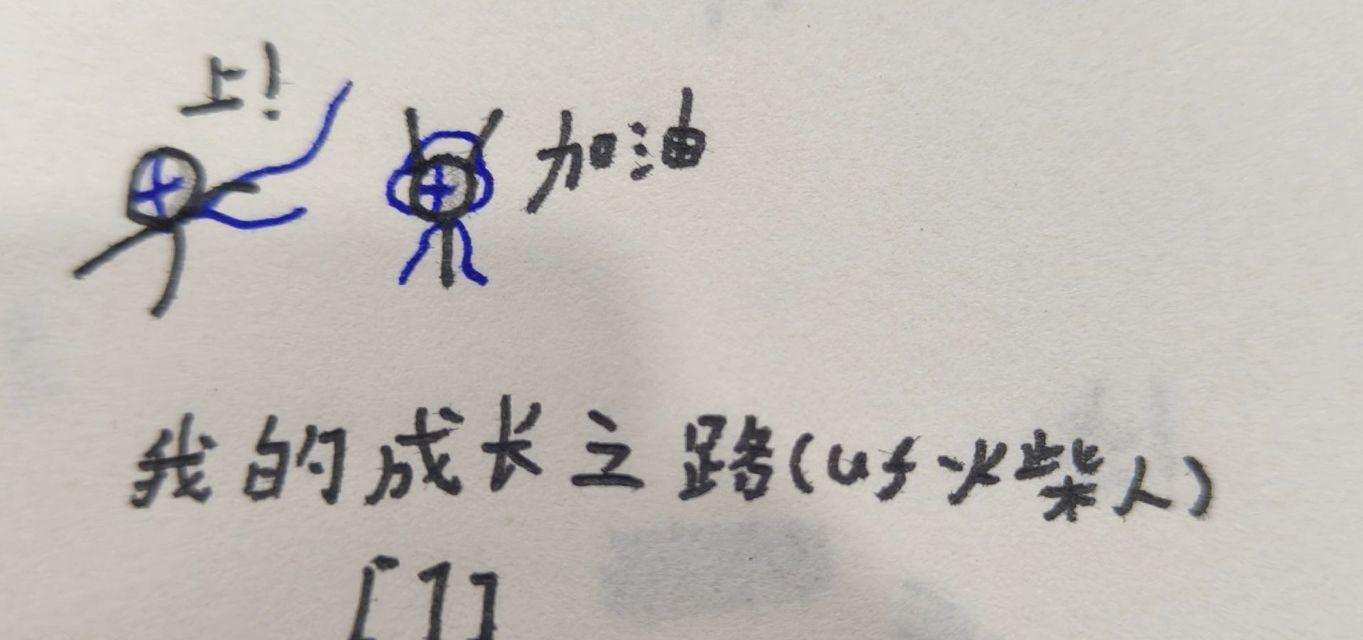 上!
加油
我的成长之路(uf-火柴人)
[1]